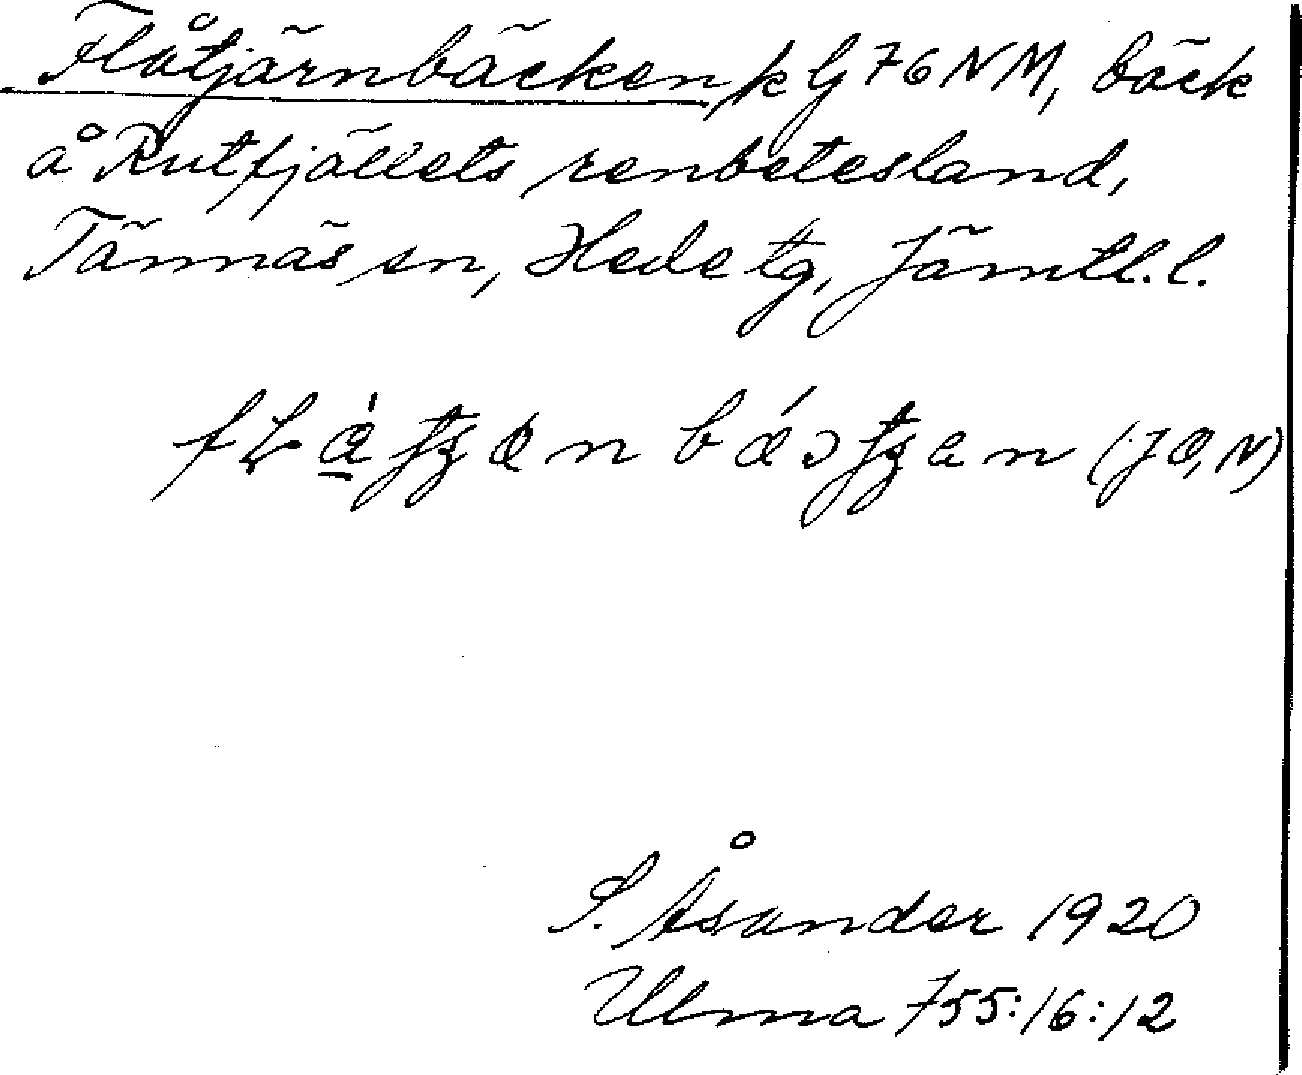 Flåtjärnbäcken, k G 76 NM, bäck
å Rutfjällets renbetesland,
Tännäs sn, Hede tg, Jämtl. l.
(JO, N)
S. Åsander 1920
Ulma 755:16:12